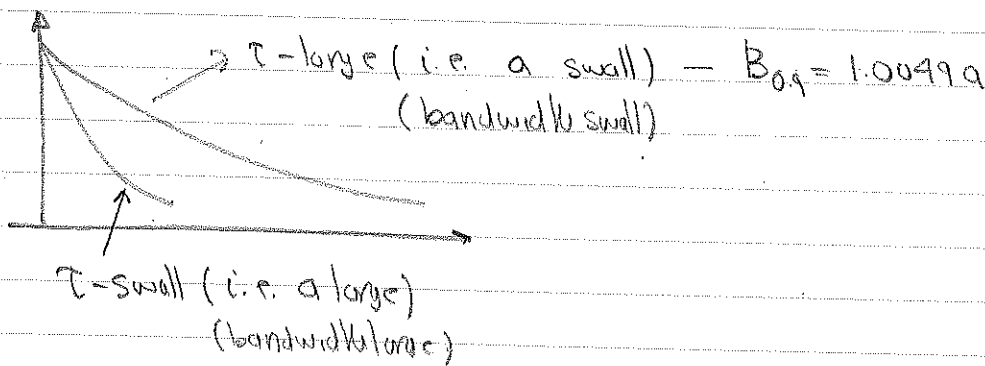 τ-large (i.e. a small) — B0.9 = 1.0049a
(bandwidth small)
τ-small (i.e. a large)
(bandwidth large)